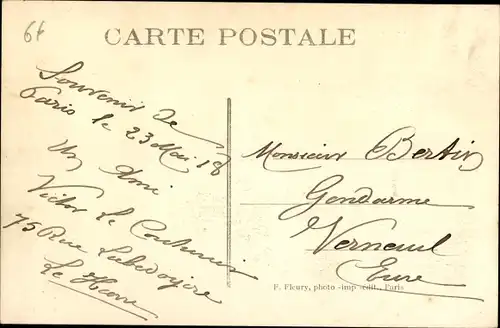 6f
CARTE POSTALE
Souvenir de
Paris le 23 Mai 18
Un Ami
Victor Le
75 Rue Labédoyère
Le Havre
Monsieur Bertin
Gendarme
Verneuil
Eure
F. Fleury, photo-imp-édit., Paris